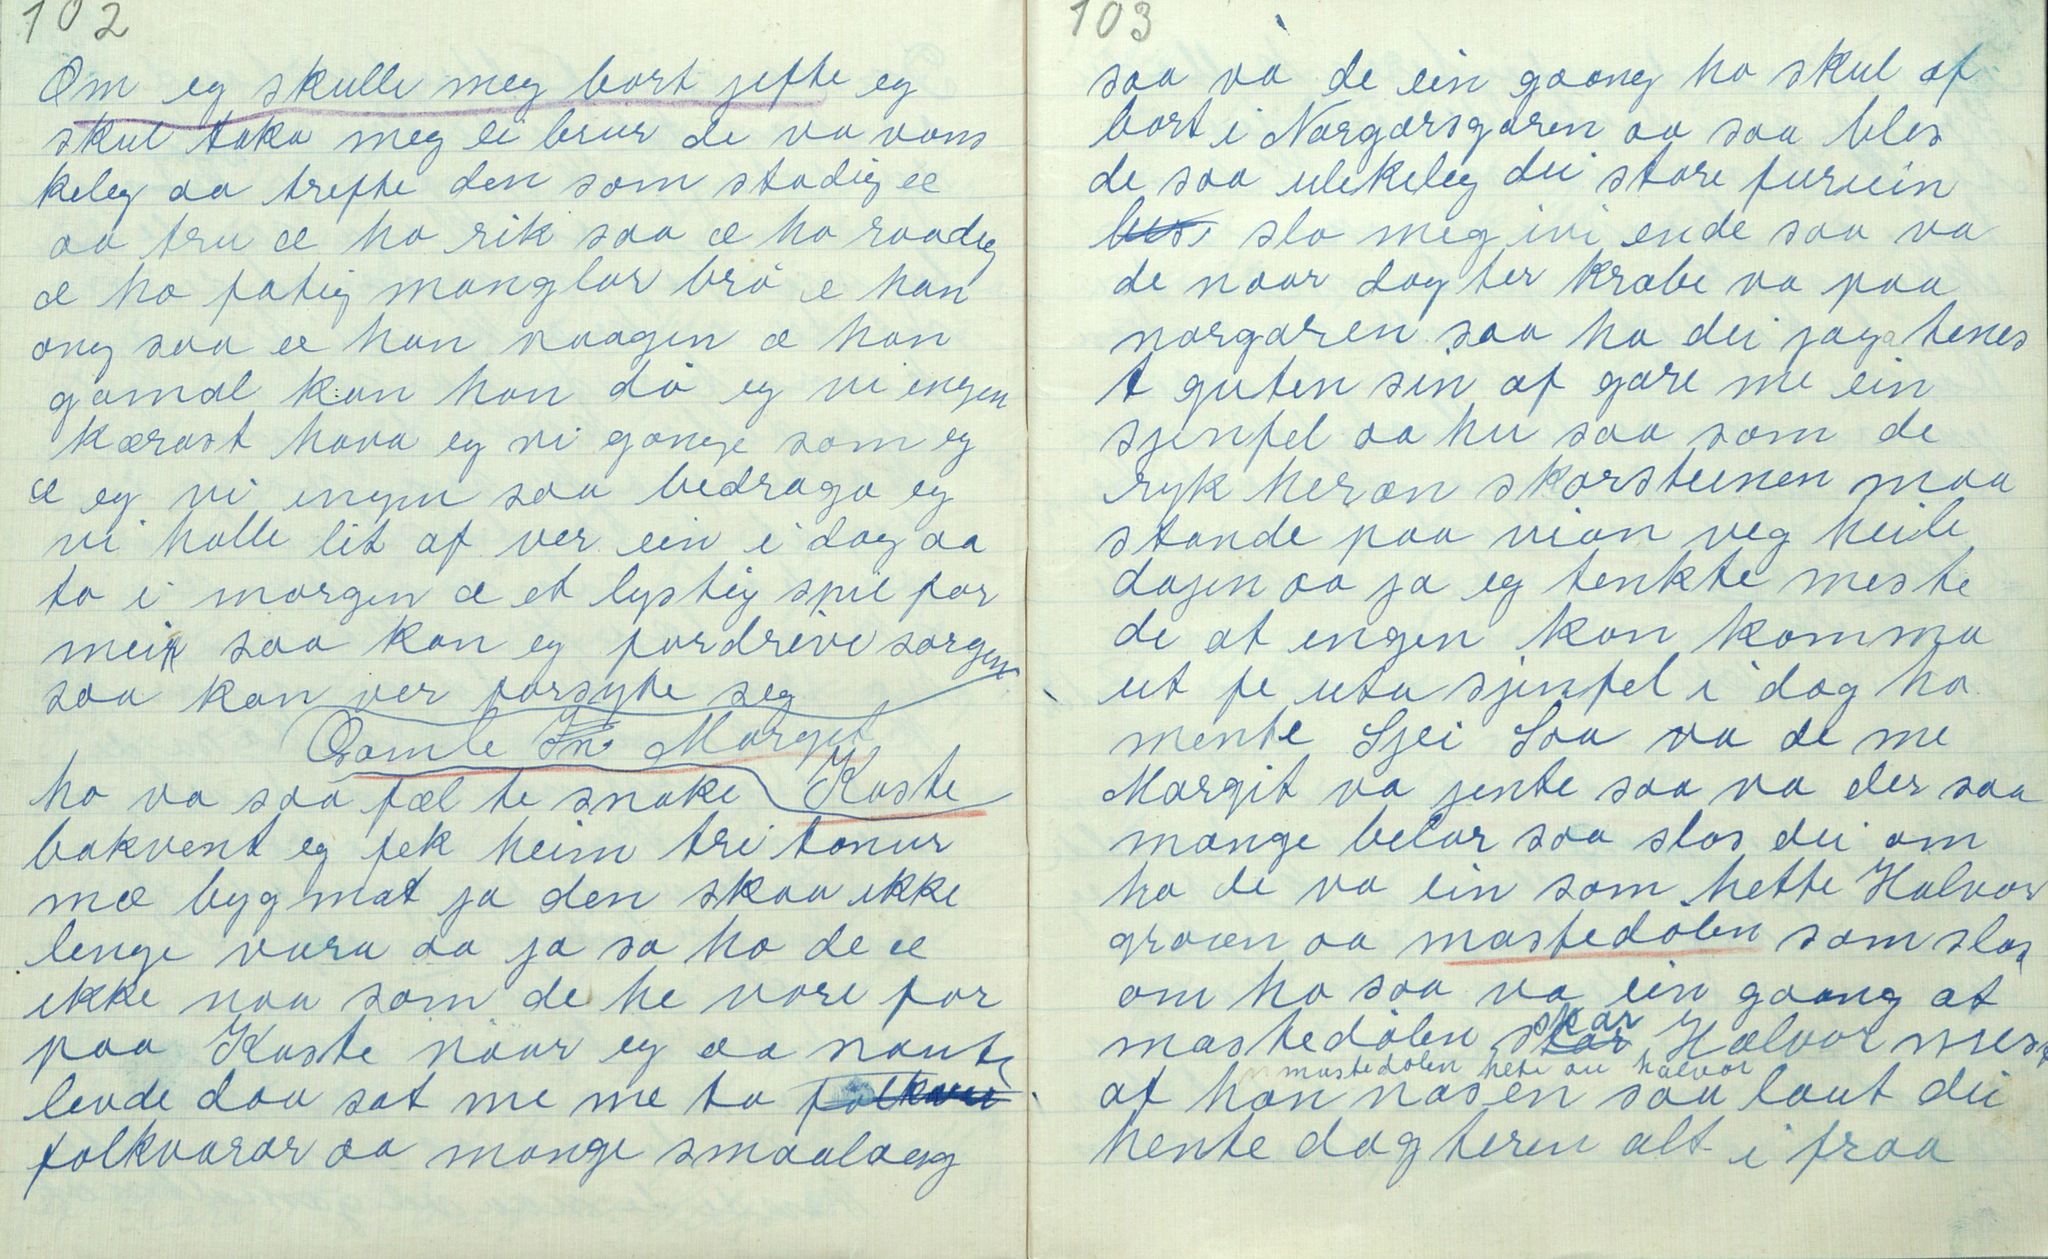 102
Om eg skulle meg bort jefte eg
skul taka meg ei brur de va vons
keleg aa trefte den som stadig æ
aa tru æ ho rik saa æ ho raadig
æ ho fatig manglar brö æ han
ong saa æ han vaagin æ han
gamal kan han dö eg vi engen
kærast hava eg vi gange som eg
æ eg vi engen saa bedraga eg
vi halle lit af ver ein i dag aa
to i morgen æ et lystig spil for
meir saa kan eg fordrive sorgen
saa kan ver forsyte seg
Gamle Margit
Kaste
ho va saa fæl te snake
bakvent eg fek heim tri tonur
mæ bygmat ja den skaa ikke
lenge vara aa ja sa ho de æ
ikke naa som de he vore for
paa Kaste naar eg aa nauts
levde daa sat me me to folkvarar
folkvarar aa mange smaalaag
103
saa va de ein gaang ho skul af
bort i Nørgarsgaren aa saa bles
de saa ulekeleg dei store furuein
bles slo meg ivi ende saa va
de naar dagter Krabe va paa
norgaren saa ha dei jaga tenes
t guten sin af gare me ein
sjenfel aa hu saa som de
ryk heran skorsteinen maa
stande paa vian veg heile
dajen aa ja eg tenkte meste
de at engen kan komma
ut fe uta sjenfel i dag ho
mente Sjei Saa va de me
Margit va jente saa va der saa
mange belar saa slos dei om
ho de va ein som hette Halvor
graven aa mastedölen som slos
om ho saa va ein gaang at
mastedölen skar Halvor mest
mastedölen hete au halvor
af han nasen saa laut dei
hente dagteren alt i fraa